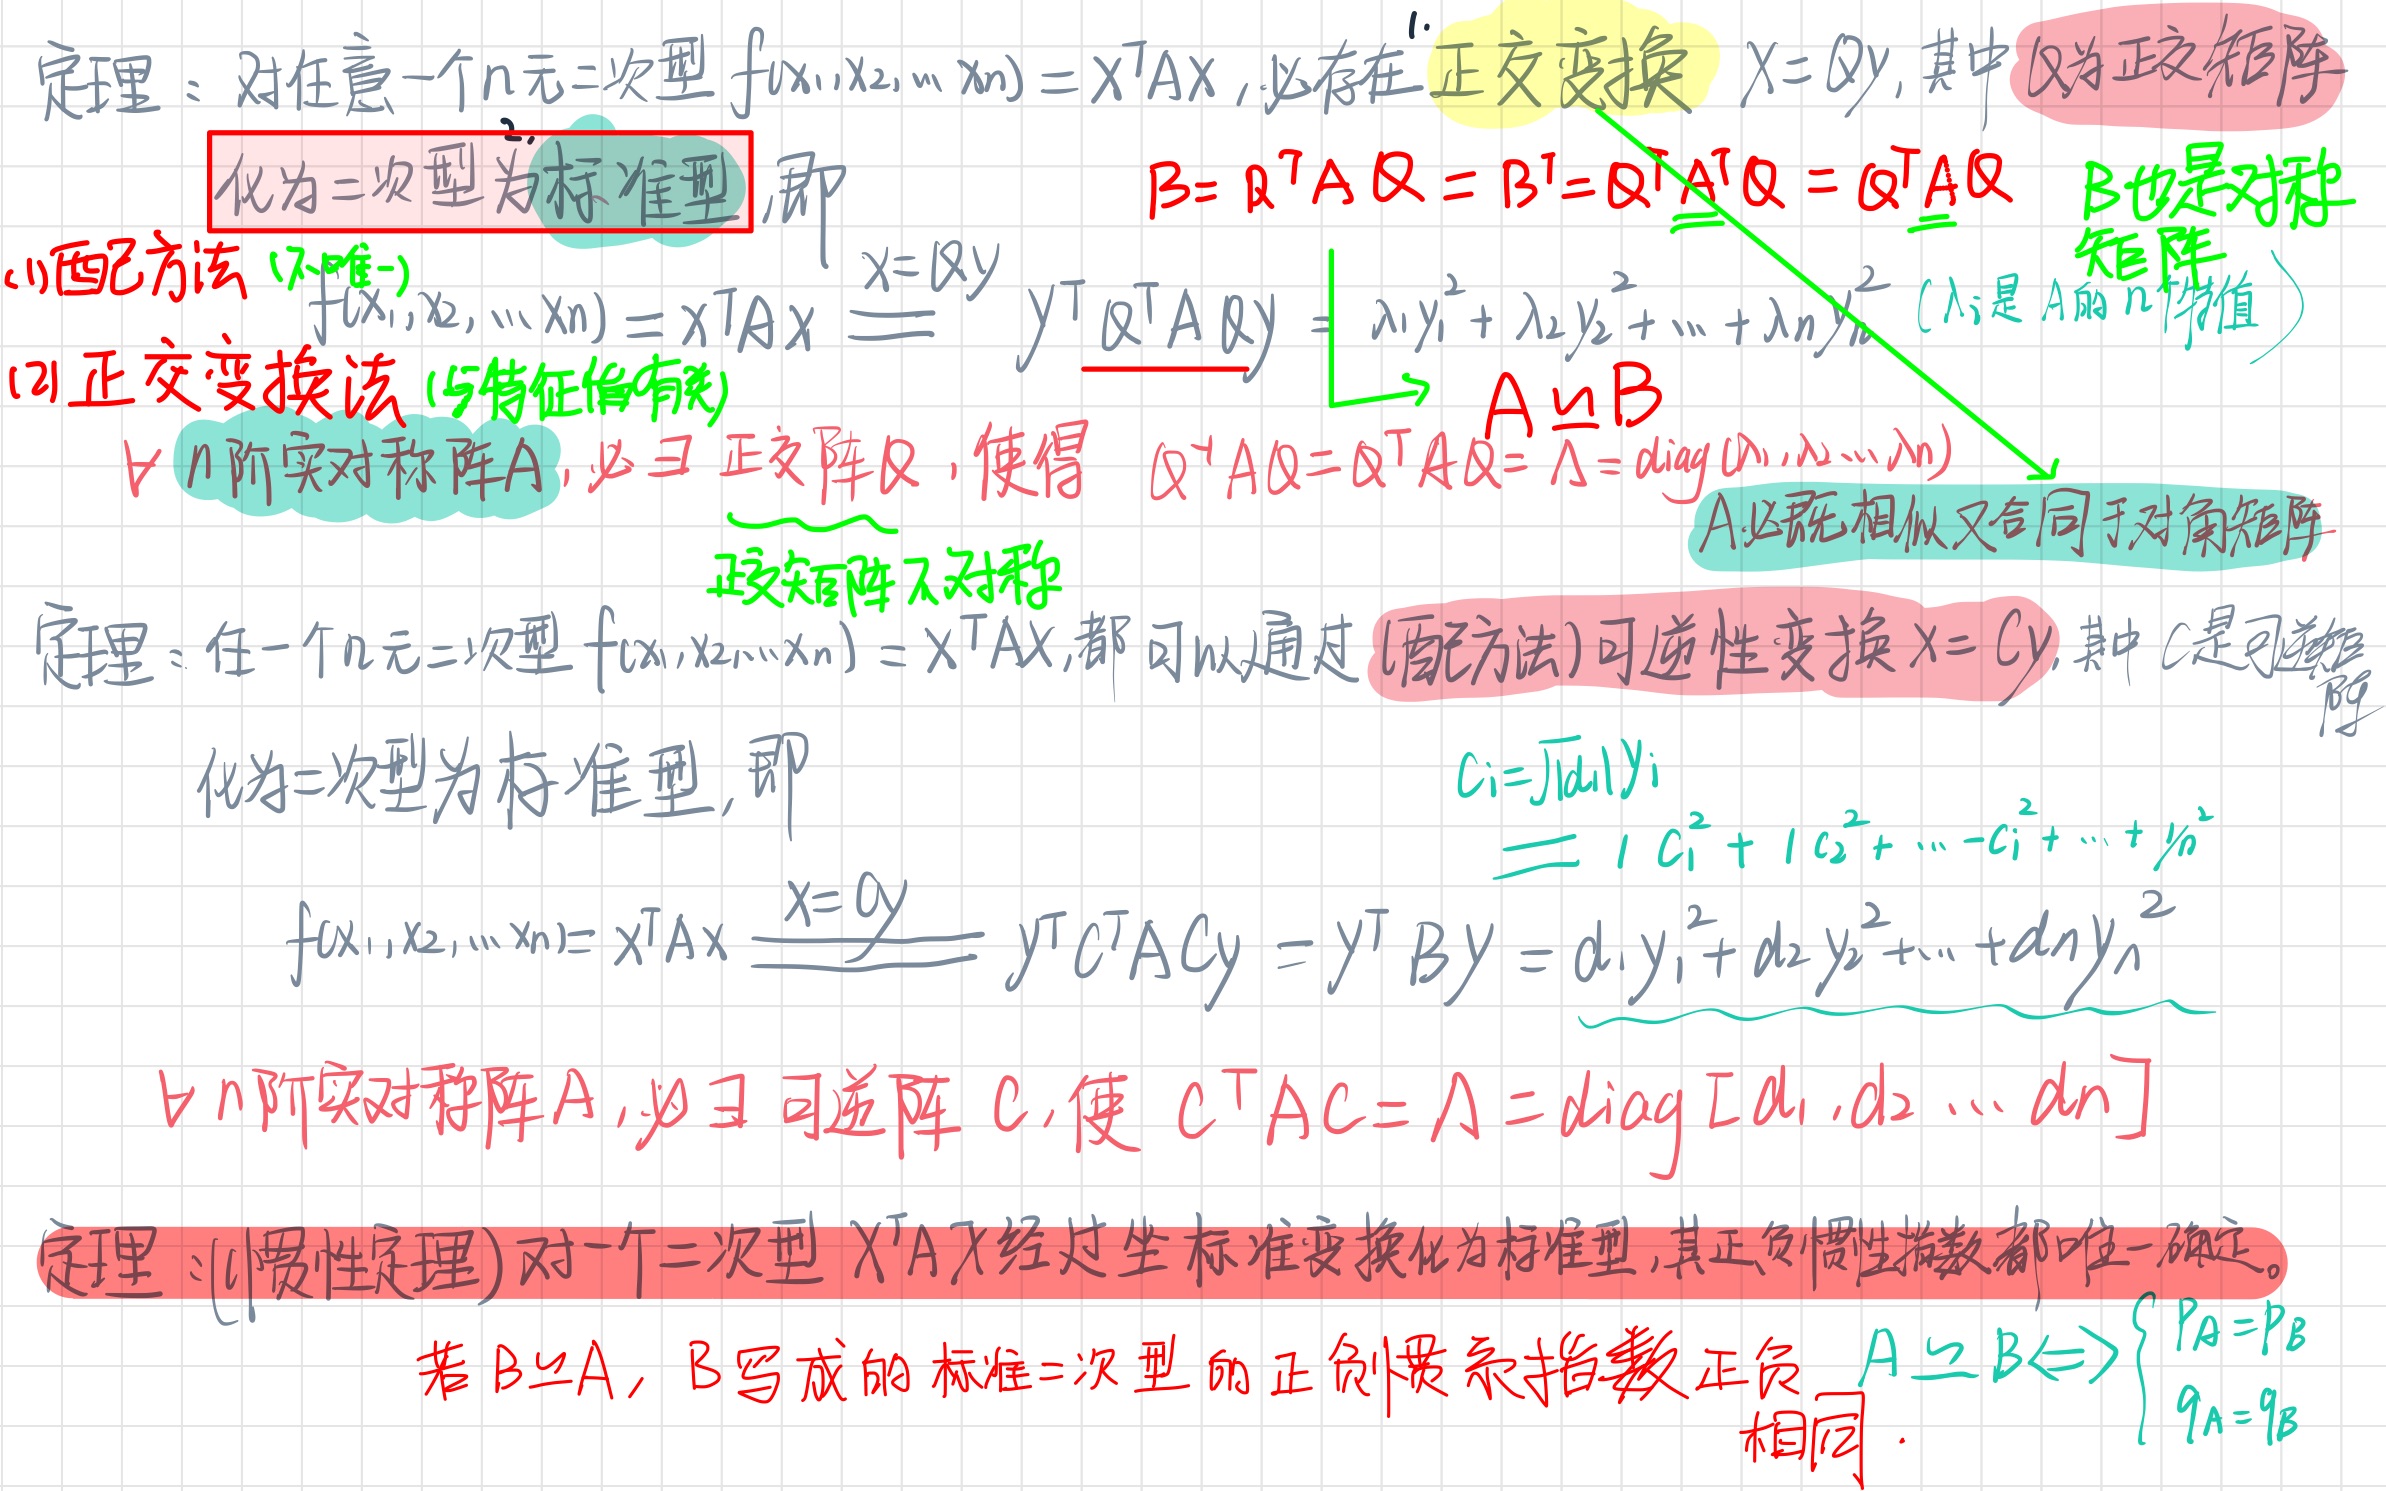 定理：对任意一个n元二次型 f(x₁,x₂,…xₙ)=xᵀAx，必存在 1. 正交变换 x=Qy，其中Q为正交矩阵
2. 化为二次型为标准型，即
B=QᵀAQ=Bᵀ=QᵀAᵀQ=QᵀAQ
B也是对称矩阵
(1)配方法（不唯一）
f(x₁,x₂,…xₙ)=xᵀAx x=Qy yᵀQᵀAQy = λ₁y₁²+λ₂y₂²+…+λₙyₙ² (λᵢ是A的n个特值)
(2)正交变换法（与特征值有关）
A≃B
∀n阶实对称阵A，必∃正交阵Q，使得 Q⁻¹AQ=QᵀAQ=Λ=diag(λ₁,λ₂…λₙ)
A必既相似又合同于对角矩阵
正交矩阵不对称
定理：任一个n元二次型f(x₁,x₂,…xₙ)=xᵀAx，都可以通过(配方法)可逆性变换x=Cy，其中C是可逆矩阵
化为二次型为标准型，即
cᵢ=√|dᵢ|yᵢ
= 1c₁²+1c₂²+…-cᵢ²+…+
f(x₁,x₂,…xₙ)=xᵀAx x=Cy yᵀCᵀACy=yᵀBy=d₁y₁²+d₂y₂²+…+dₙyₙ²
∀n阶实对称阵A，必∃可逆阵C，使 CᵀAC=Λ=diag[d₁,d₂…dₙ]
定理：(惯性定理)对一个二次型xᵀAx经过坐标准变换化为标准型，其正负惯性指数都唯一确定。
若B≃A，B写成的标准二次型的正负惯系指数正负相同．
A≃B⇔{ p_A=p_B
q_A=q_B